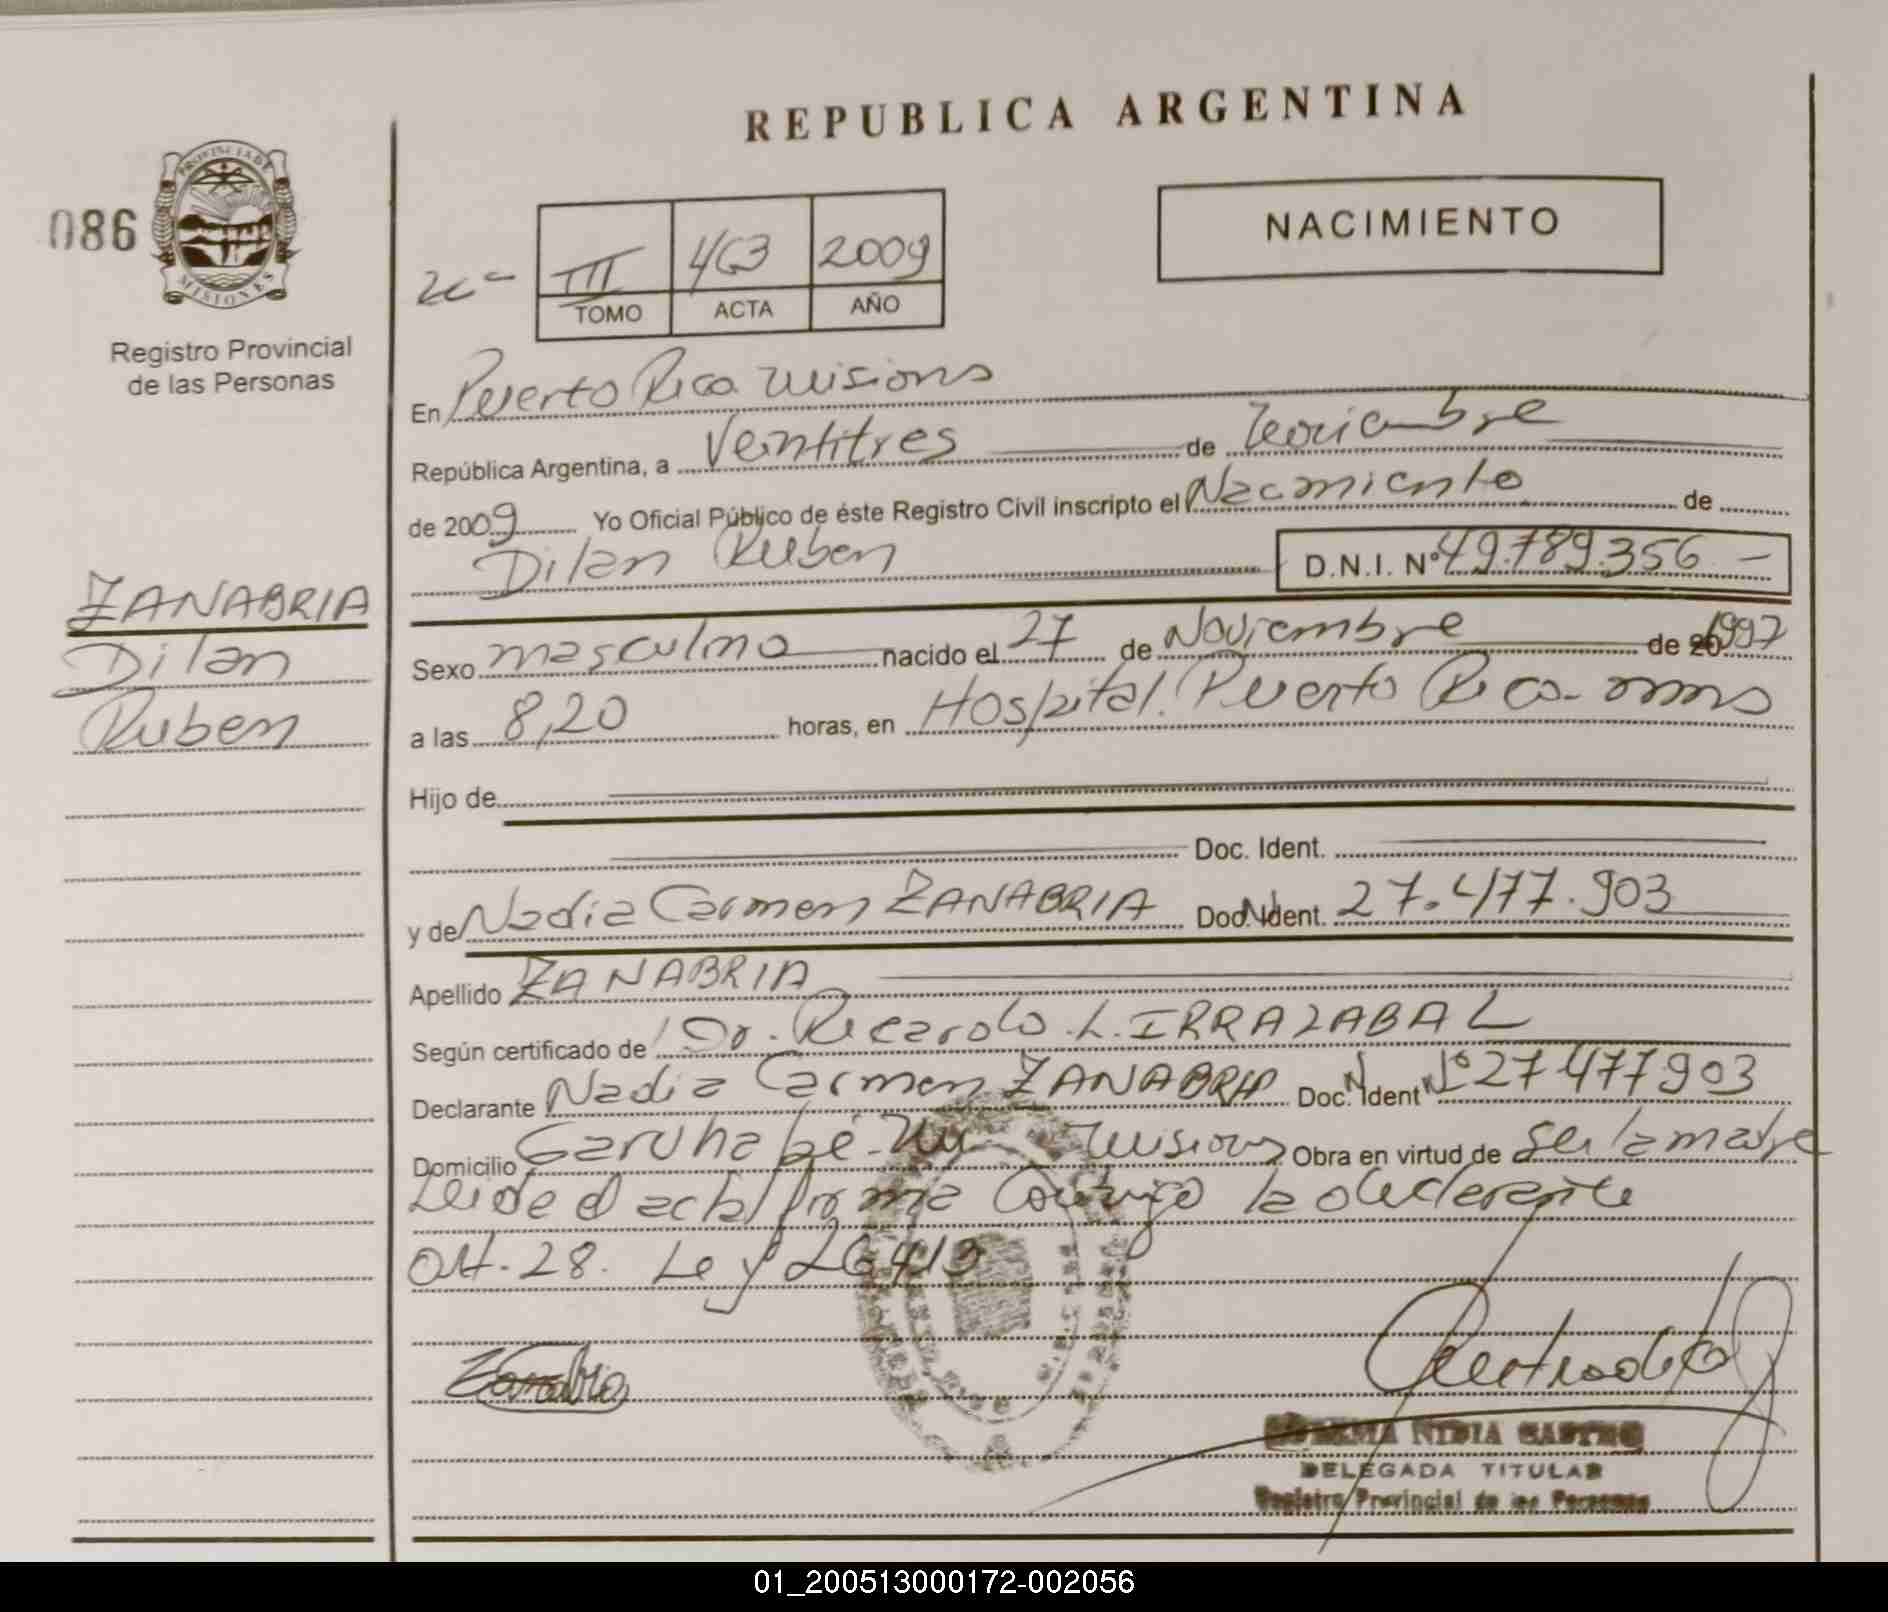 REPUBLICA ARGENTINA
086
PROVINCIA DE
MISIONES
Registro Provincial
de las Personas
NACIMIENTO
III 463 2009
TOMO ACTA AÑO
En Puerto Rico Misiones
República Argentina, a Veintitres de
de 2009 Yo Oficial Público de éste Registro Civil inscripto el Nacimiento de
Dilan Ruben D.N.I. Nº 49.789.356 -
ZANABRIA
Dilan
Ruben
Sexo masculino nacido el 27 de Noviembre de 20 1997
a las 8,20 horas, en Hospital. Puerto Rico-
Hijo de
Doc. Ident.
y de Nadia Carmen ZANABRIA Doc. Ident. 27.477.903
Apellido ZANABRIA
Según certificado de Dr. Ricardo L. IRRAZABAL
Declarante Nadia Carmen ZANABRIA Doc. Ident Nº 27477903
Domicilio Garuhapé- Misiones Obra en virtud de ser la madre
Leida el acta firma conmigo la declarante
Art. 28. Ley 26413
Zanabria
NIDIA CASTRO
DELEGADA TITULAR
Registro Provincial de las Personas
01_200513000172-002056